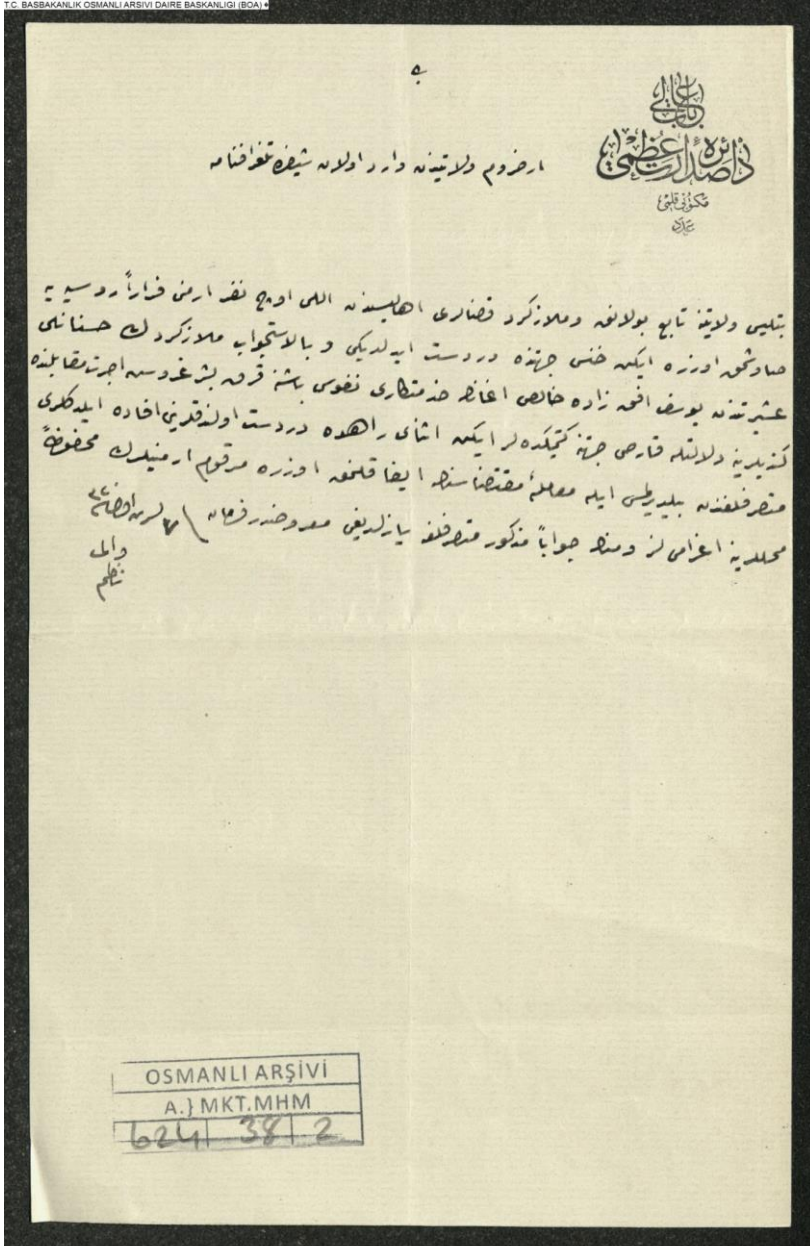 T.C. BASBAKANLIK OSMANLI ARSIVI DAIRE BASKANLIGI (BOA)
باب عالی
دائرهٔ صدارت عظمی
مكتوبی قلمی
عدد
ارضروم ولايتندن وارد اولان شيفره تلغرافنامه
بتليس ولايتنه تابع بولانق وملازكرد قضالری اهاليسندن اللی اوچ نفر ارمنی فراراً روسيه يه
صاوشمق اوزره ايكن خنس جهتنده دردست ايدلديكی و بالاستجواب ملازكردك حسنانلی
عشيرتندن يوسف افندی زاده خالص اغانك خدمتكاری نفوس باشنه قرق بشر غروش اجرت مقابلنده
كنديلرينه دلالتله قارص جهتنه كتمكده لر ايكن اثنای راهده دردست اولندقلرينی افاده ايلدكلری
متصرفلغندن بيلديرلمسی ايله معاملهٔ مقتضيه سنك ايفا قلنمق اوزره مرقوم ارمنيلرك محفوظاً
محللرينه اعزامی لزومنك جواباً مذكور متصرفلغه يازلديغی معروضدر فرمان
والی
ناظم
OSMANLI ARŞİVİ
A.} MKT.MHM
624 38 2